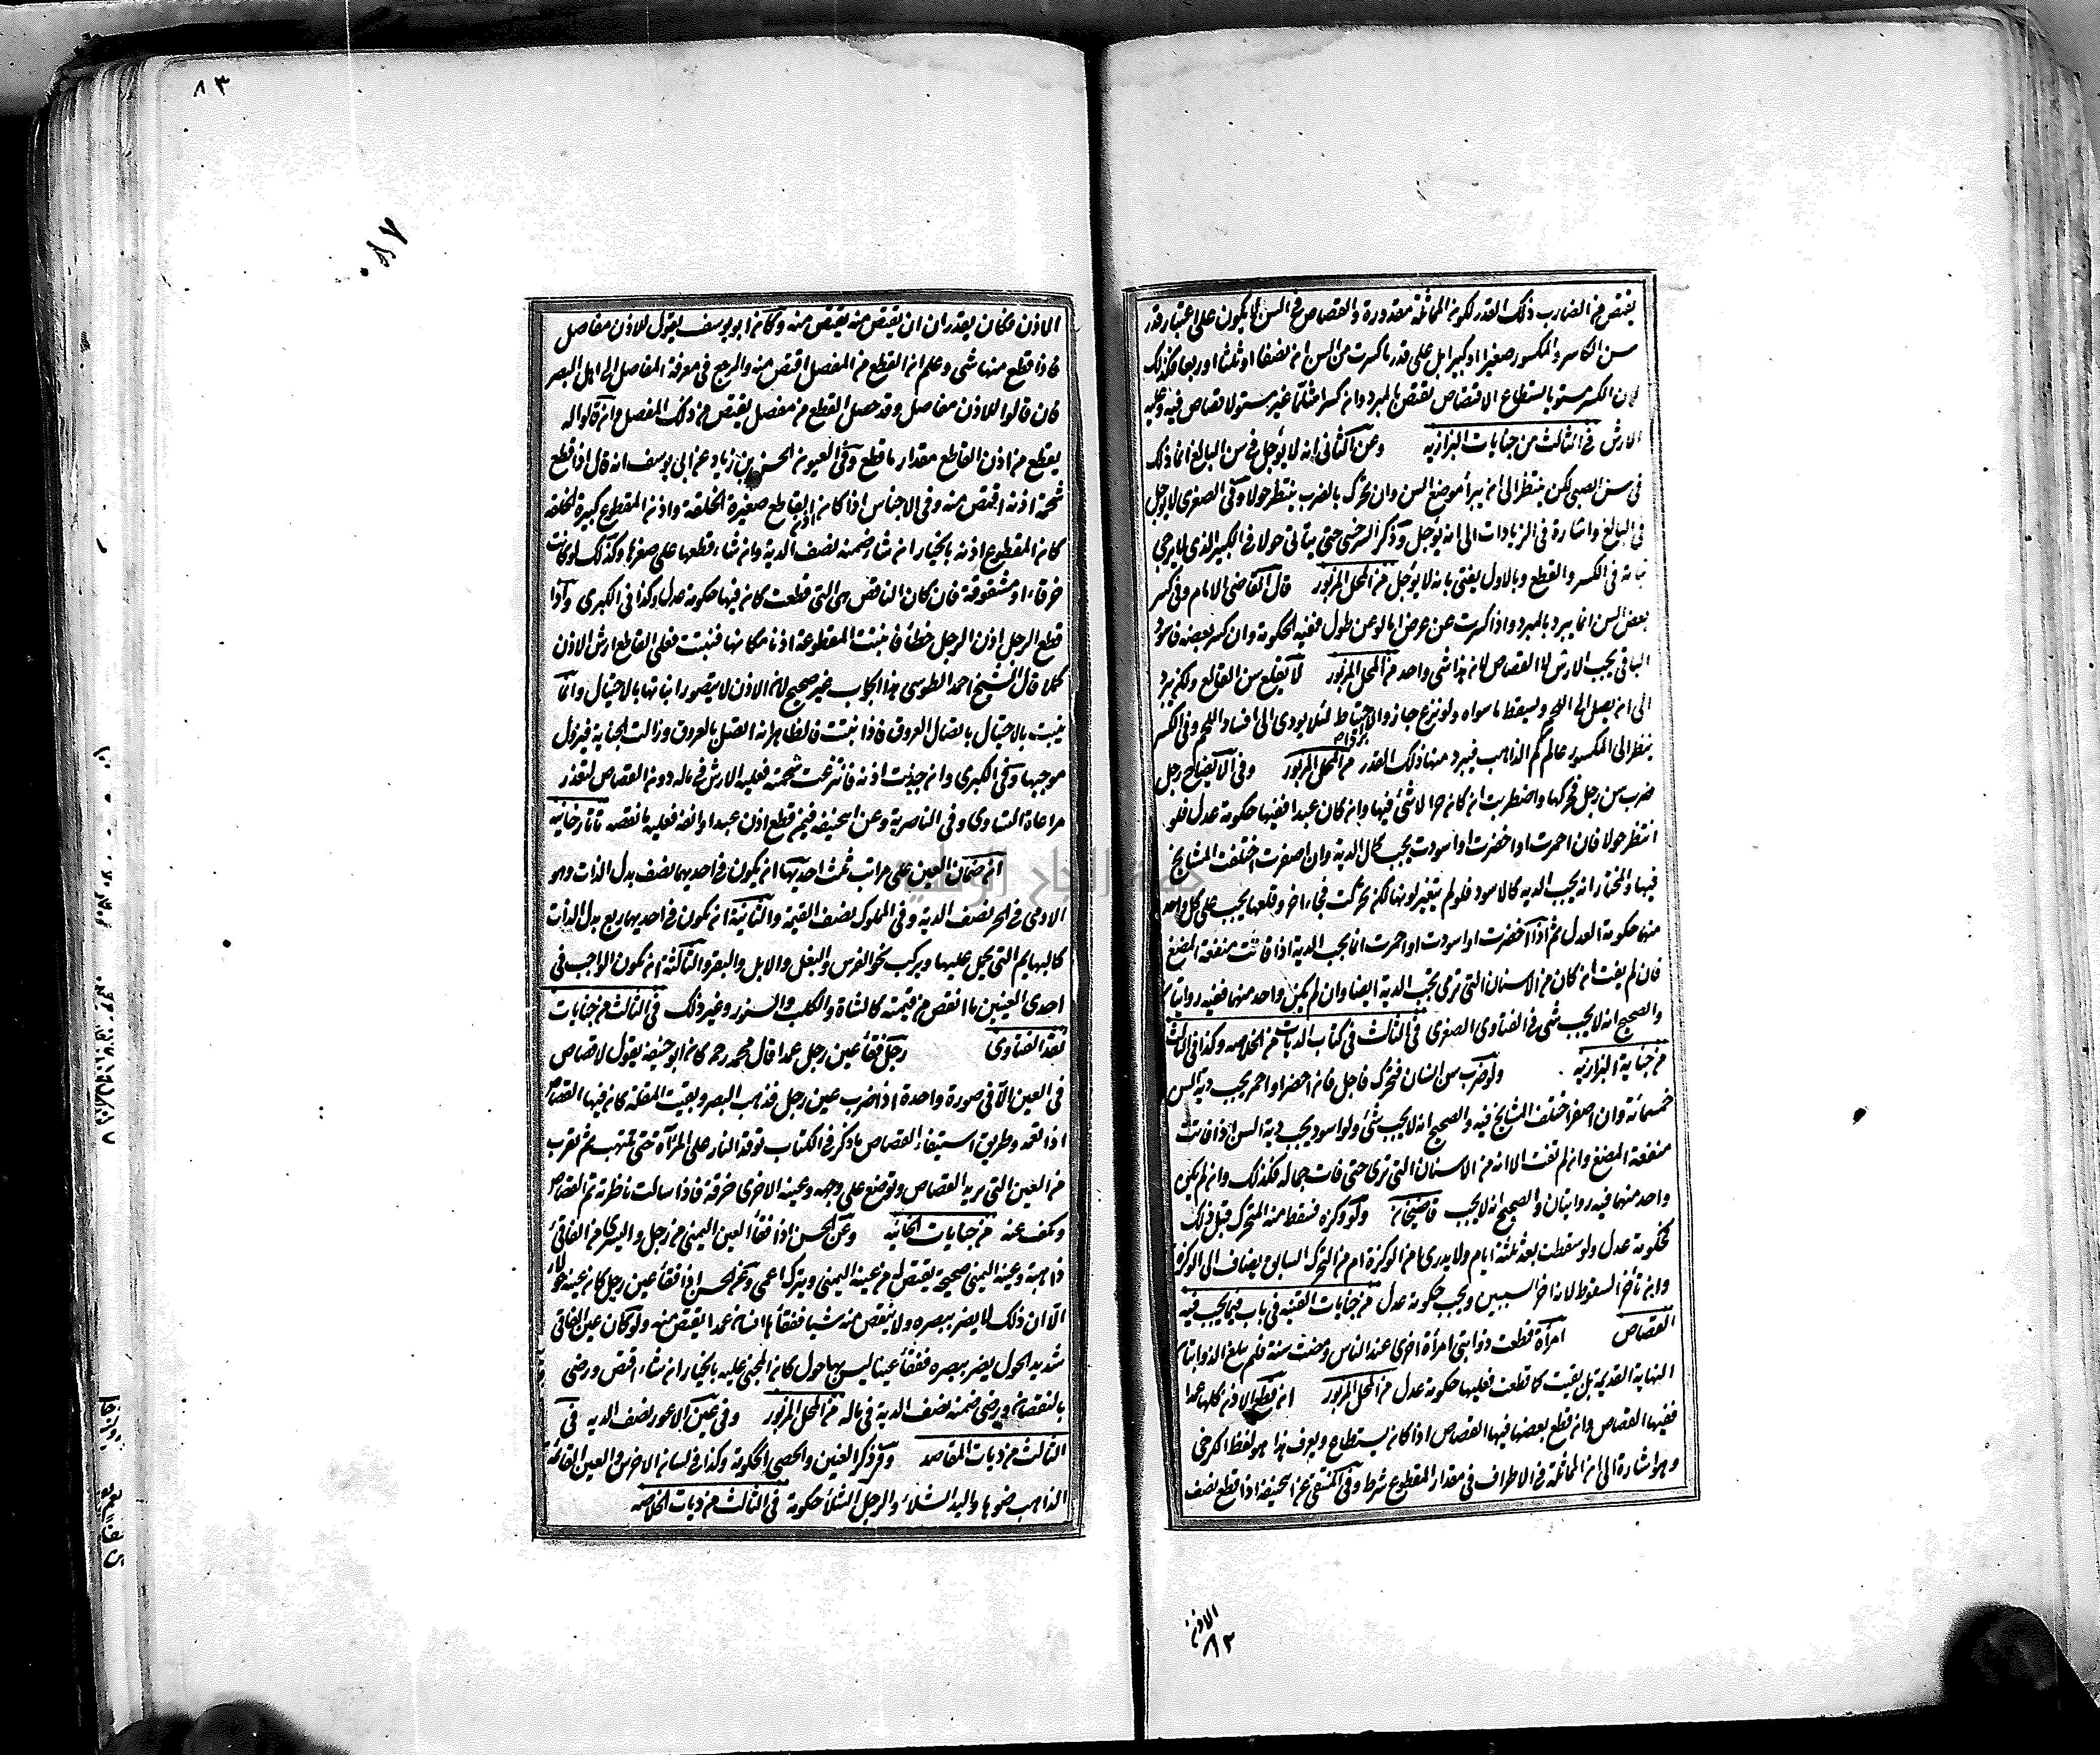 يقتص من الضارب ذلك القدر لكون المماثلة مقدورة والقصاص في السن لا يكون على اعتبار قدر
سن الكاسر والمكسور صغيرا او كبيرا بل على قدر ما كسرت من السن ان نصفا او ثلثا او ربعا فكذلك
ان الكسر مستو يستطاع الاقتصاص يقتص بالمبرد وان كسرا متثلما غير مستو لا قصاص فيه وعليه
الارش في الثالث من جنايات البزازيه وعن الثانى انه لا يؤجل في سن البالغ انما ذلك
في سن الصبى لكن ينتظر الى ان يبرأ موضع السن وان تحرك بالضرب ينتظر حولا وفي الصغرى لا يؤجل
في البالغ واشارة في الزيادات الى انه يؤجل وذكر السرخسى حتى يتأنى حولا في الكبير الذى لا يرجى
نباته في الكسر والقطع وبالاول يفتى بانه لا يؤجل من المحل المزبور قال القاضى الامام وفي كسر
بعض السن انما يبرد بالمبرد واذا كسرت عن عرض اما لو عن طول ففيه الحكومة وان كسر بعضه فاسود
الباقى يجب الارش لا القصاص لانه هذا شى واحد من المحل المزبور لا يقلع سن القالع ولكن يبرد
الى ان يصل الى اللحم ويسقط ما سواه ولو نزع جاز والاحتياط لئلا يودى الى افساد اللحم وفي الكسر
ينظر الى المكسور عالم كم الذاهب فيبرد منها ذلك القدر من المحل المزبور وفي الايضاح رجل
ضرب سن رجل فحركها واضطربت ان كانه حرا لا شئ فيها وان كان عبدا ففيها حكومة عدل فلو
انتظر حولا فان احمرت او اخضرت او اسودت يجب كمال الدية وان اصفرت اختلفت المشايخ
فيها والمختار انه يجب الديه كالاسود فلو لم يتغير لونها لكن تحركت فجاء اخر وقلعها يجب على كل واحد
منهما حكومة العدل ثم اذا اخضرت او اسودت او احمرت انما يجب الدية اذا فاتت منفعة المضغ
فان لم يفت ان كان من الاسنان التى ترى يجب الدية ايضا وان لم يكن واحد منهما ففيه روايتان
والصحيح انه لا يجب شى في الفتاوى الصغرى في الثالث في كتاب الديات من الخلاصه وكذا في الثالث
من جناية البزازيه ولو ضرب سن انسان فتحرك فاجل فان اخضر او احمر يجب دية السن
خمسمائة وان اصفر اختلف المشايخ فيه والصحيح انه لا يجب شئ ولو اسود يجب دية السن اذا فاتت
منفعة المضغ وان لم تفت الا انه من الاسنان التى ترى حتى فات جماله فكذلك وان لم يكن
واحد منهما فيه روايتان والصحيح انه لا يجب قاضيخان ولو وكزه فسقط منه المتحرك قبل ذلك
فحكومة عدل ولو سقطت بعد ثلثة ايام ولا يدرى امن الوكزة ام من التحرك السابق يضاف الى الوكزة
وان تأخر السقوط لانه اخر السببين ويجب حكومة عدل من جنايات القنيه في باب فيما يجب فيه
القصاص امرأة قطعت ذوابتى امرأة اخرى عند الناس ومضت سنة فلم يبلغ الذوابتان
النهاية القديمة بل بقيت كما قطعت فعليها حكومة عدل من المحل المزبور ان قطع الاذن كلها عمدا
ففيها القصاص وان قطع بعضها فيها القصاص اذا كانه يستطاع ويعرف هذا هو لفظ الكرخى
وهو اشارة الى ان المماثلة في الاطراف في مقدار المقطوع شرط وفي المنتقى عن ابى حنيفة اذا قطع نصف
الاذن
٨٢
٨٣
الاذن فكان يقدر ان ان يقتص منه يقتص منه وكان ابو يوسف يقول للاذن مفاصل
فاذا قطع منها شى وعلم ان القطع من المفصل اقتص منه والمرجع في معرفة المفاصل الى اهل البصر
فان قالوا للاذن مفاصل وقد حصل القطع من مفصل يقتص من ذلك المفصل وان قالوا لا
يقطع من اذن القاطع مقدار ما قطع وفي العيون الحسن بن زياد عن ابى يوسف انه قال اذا قطع
شحمة اذنه اقتص منه وفي الاجناس اذا كان اذن القاطع صغيرة الخلقة واذن المقطوع كبيرة الخلقة
كان المقطوع اذنه بالخيار ان شاء ضمنه نصف الدية وان شاء قطعها على صغرها وكذلك لو كانت
خرقاء او مشقوقة فان كان الناقص هى التى قطعت كان فيها حكومة عدل وكذا في الكبرى واذا
قطع الرجل اذن الرجل خطأ فاثبت المقطوعة اذنه مكانها فنبتت فعلى القاطع ارش الاذن
كملا قال الشيخ احمد الطوسى هذا الجواب غير صحيح لان الاذن لا يتصور اثباتها بالاحتيال وانما
ينبت بالاحتيال باتصال العروق فاذا نبتت فالظاهر انه اتصل بالعروق وزالت الجناية فيزول
موجبها وفي الكبرى وان جذبت اذنه فانتزعت شحمته فعليه الارش في ماله دون القصاص لتعذر
مراعاة التساوى وفي الناصرية وعن ابى حنيفه فيمن قطع اذن عبد او انفه فعليه ما نقصه تاتارخانيه
ان ضمان العين على مراتب ثلث احديها ان يكون في احديهما نصف بدل الذات وهو
الادمى في الحر نصف الدية وفي المملوك نصف القيمة والثانية ان يكون في احديهما ربع بدل الذات
كالبهايم التى يحمل عليها ويركب نحو الفرس والبغل والابل والبقر والثالثة ان يكون الواجب في
احدى العينين ما انقص من قيمته كالشاة والكلب والسنور وغير ذلك في الثالث من جنايات
نقد الفتاوى رجل فقأ عين رجل عمدا قال محمد رحمه كان ابو حنيفه يقول لا قصاص
في العين الا في صورة واحدة اذا ضرب عين رجل فذهب البصر وبقيت المقلة كان فيها القصاص
اذا تعمد وطريق استيفاء القصاص ما ذكر في الكتاب توقد النار على المرآة حتى تلتهب ثم تقرب
من العين التى يريد القصاص وتوضع على وجهه وعينه الاخرى خرقة فاذا سالت ناظرته تم القصاص
ويكف عنه من جنايات الخانيه وعن الحسن اذا فقأ العين اليمنى من رجل واليسرى من الفاقئ
ذاهبة وعينه اليمنى صحيحة يقتص له من عينه اليمنى ويترك اعمى وعن الحسن اذا فقأ عين رجل كان بعينه حولا
الا ان ذلك لا يضر ببصره ولا ينقص منه شيا ففقأها انسان عمدا يقتص منه ولو كان عين الفاقئ
شديد الحول يضر ببصره ففقأ عينا ليس بها حول كان المجنى عليه بالخيار ان شاء اقتص ورضى
بالنقصان ورضى ضمنه نصف الدية في ماله من المحل المزبور وفي عين الاعور نصف الديه في
الثالث من ديات المقاصد وفي ذكر العنين والخصى الحكومة وكذا في لسان الاخرس والعين القائمة
الذاهب ضوها واليد الشلاء والرجل الشلاء حكومة في الثالث من ديات الخلاصه